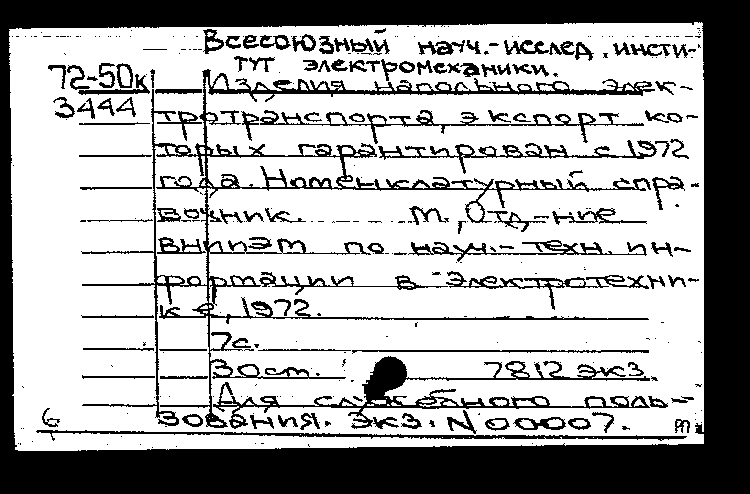 Всесоюзный науч.-исслед. инсти-
тут электромеханики.
72-50к Изделия напольного элек-
3444 тротранспорта, экспорт ко-
торых гарантирован с 1972
года. Номенклатурный спра-
вочник. М., Отд-ние
ВНИИЭМ по науч.-техн. ин-
формации в электротехни-
ке, 1972.
7с.
30 ст. 7812 экз.
Для служебного поль-
зования. Экз. N 00007.